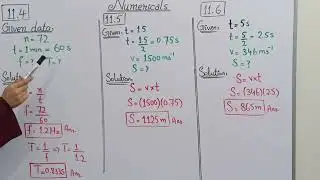 Numericals
11.4
Given data:
n = 72
t = 1 min = 60s
f = ? T = ?
Solution
n
t
f = 72
60
f = 1.2 Hz Ans.
T = 1 ⇒ T = 1
f 1.2
T = 0.833s Ans
11.5
Given:
t = 1.5
t = 1.5 = 0.75s
2
v = 1500 ms⁻¹
S = ?
Solution:
S = v×t
S = (1500)(0.75)
S = 1125m Ans.
11.6
Given:
t = 5s
t = 5 = 2.5s
2
v = 346 ms⁻¹
S = ?
Solution:
S = v×t
S = (346)(2.5)
S = 865m Ans.